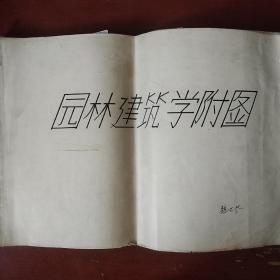 园林建筑学附图